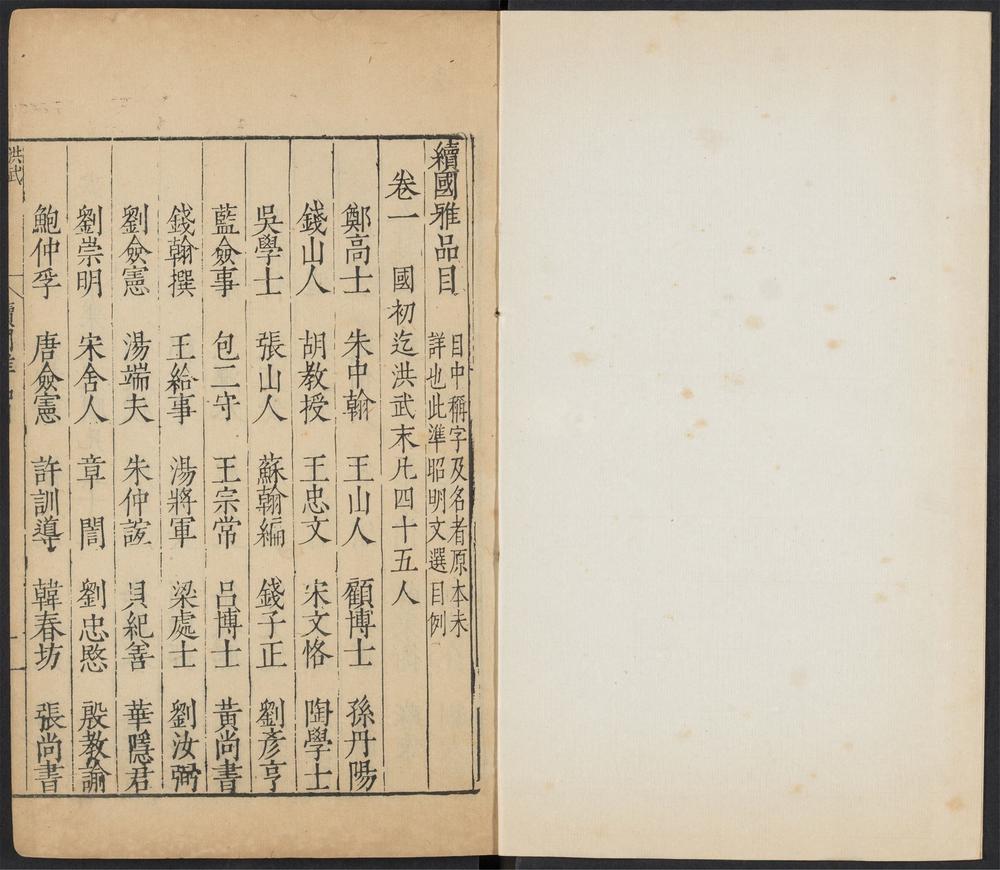 續國雅品目
目中稱字及名者原本未
詳也此準昭明文選目例
卷一 國初迄洪武末凡四十五人
鄭高士 朱中翰 王山人 顧博士 孫丹陽
錢山人 胡教授 王忠文 宋文恪 陶學士
吳學士 張山人 蘇翰編 錢子正 劉彥亨
藍僉事 包二守 王宗常 呂博士 黃尚書
錢翰撰 王給事 湯將軍 梁處士 劉汝弼
劉僉憲 湯端夫 朱仲誼 貝紀善 華隱君
劉崇明 宋舍人 章誾 劉忠愍 殷教諭
鮑仲孚 唐僉憲 許訓導 韓春坊 張尚書
洪武